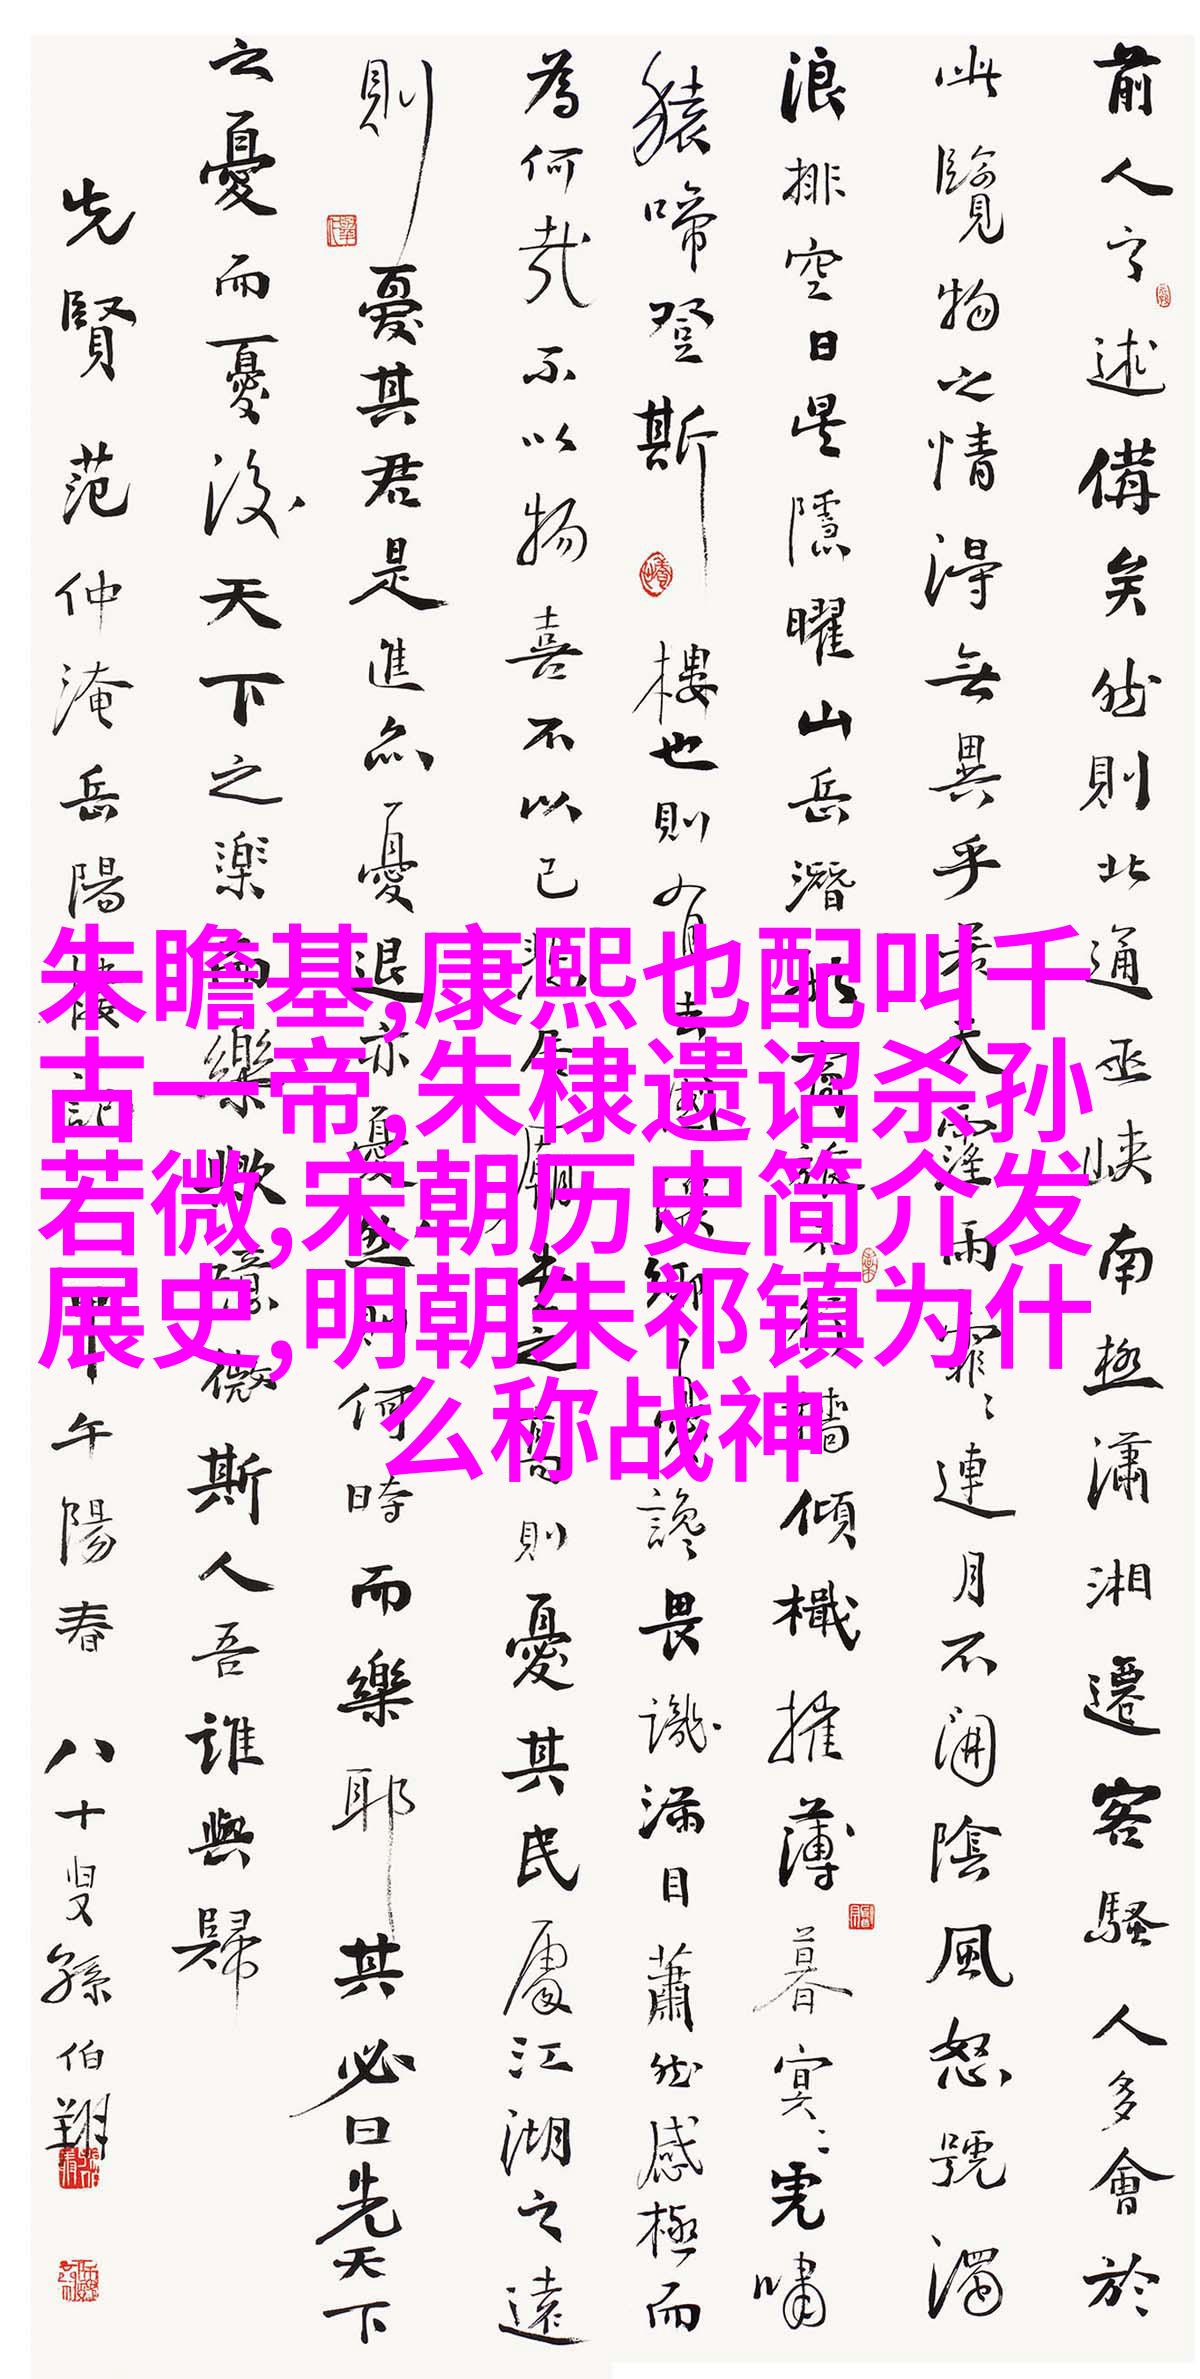 前人之述備矣然則北通巫峽南極瀟湘遷客騷人多會於
此覽物之情得無異乎若夫霪雨霏〻連月不開陰風怒號濁
浪排空日星隱曜山岳潛形商旅不行檣傾檝摧薄暮冥〻虎嘯
猿啼登斯樓也則有去國懷鄉憂讒畏譏滿目蕭然感極而
為何哉不以物喜不以己悲居廟堂之高則憂其民處江湖之遠
則憂其君是進亦憂退亦憂然則何時而樂耶其必曰先天下
之憂而憂後天下之樂而樂歟噫微斯人吾誰與歸
先賢范仲淹岳陽樓記甲午陽春 八十叟孫伯翔
朱瞻基,康熙也配叫千
古一帝,朱棣遗诏杀孙
若微,宋朝历史简介发
展史,明朝朱祁镇为什
么称战神